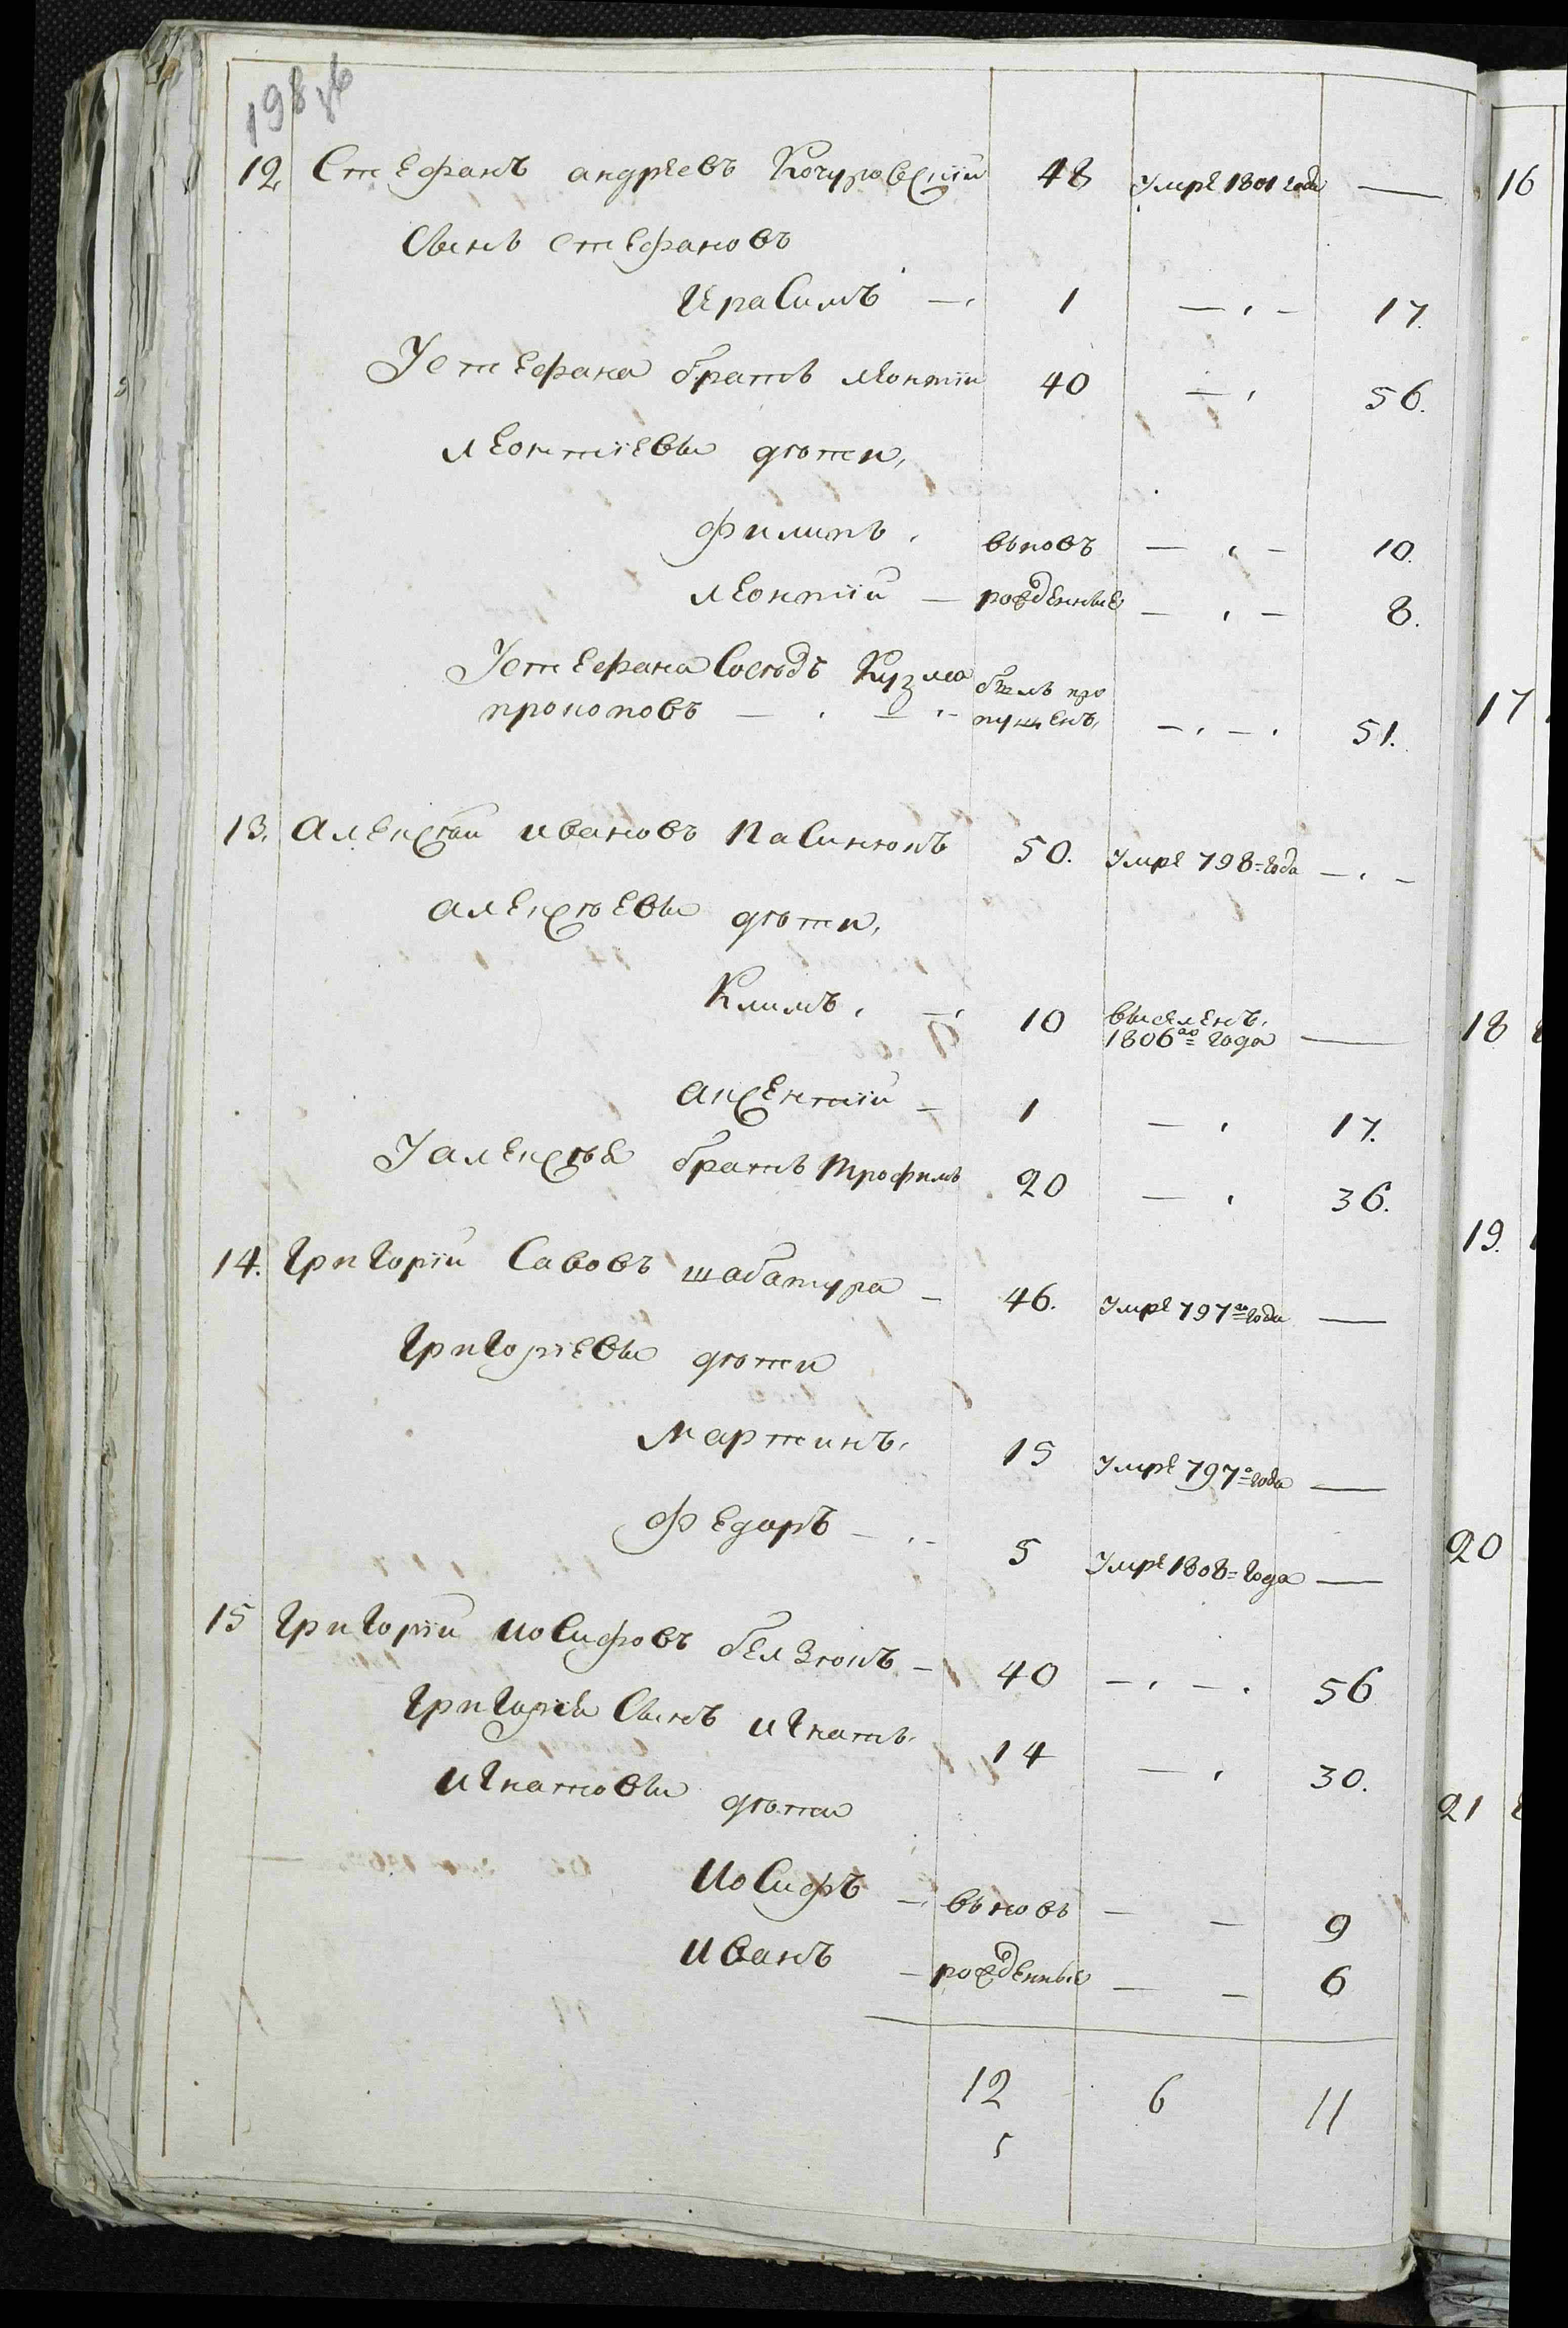 198 об
12, Стефанъ андреевъ Кочуровскій 48 Умре 1801 года —
Сынъ стефановъ
Герасимъ — 1 — 17.
У стефана братъ леонтіи 40 — 56.
леонтіевы дѣти,
филипъ, вьновъ — 10.
леонтіи — рожденные — 8.
У стефана Соседъ Кузма былъ про
прокоповъ — пущенъ, — 51.
13. алексѣи ивановъ Пасинокъ 50. Умре 798 года —
алексѣевы дѣти,
Климъ, — 10 выселенъ,
1806го года —
аксентіи — 1 — 17.
У алексѣя братъ трофимъ 20 — 36.
14. Григоріи Савовъ шабатура — 46. Умре 797го года —
Григоріевы дѣти
мартинъ, 15 Умре 797го года —
федоръ — 5 Умре 1808 года —
15 Григоріи иосифовъ белзюкъ — 40 — 56
Григорія Сынъ игнатъ 14 — 30.
игнатовы дѣти
иосифъ — вьновъ — 9
иванъ — рожденные — 6
12 6 11
5
16
17
18
19.
20
21